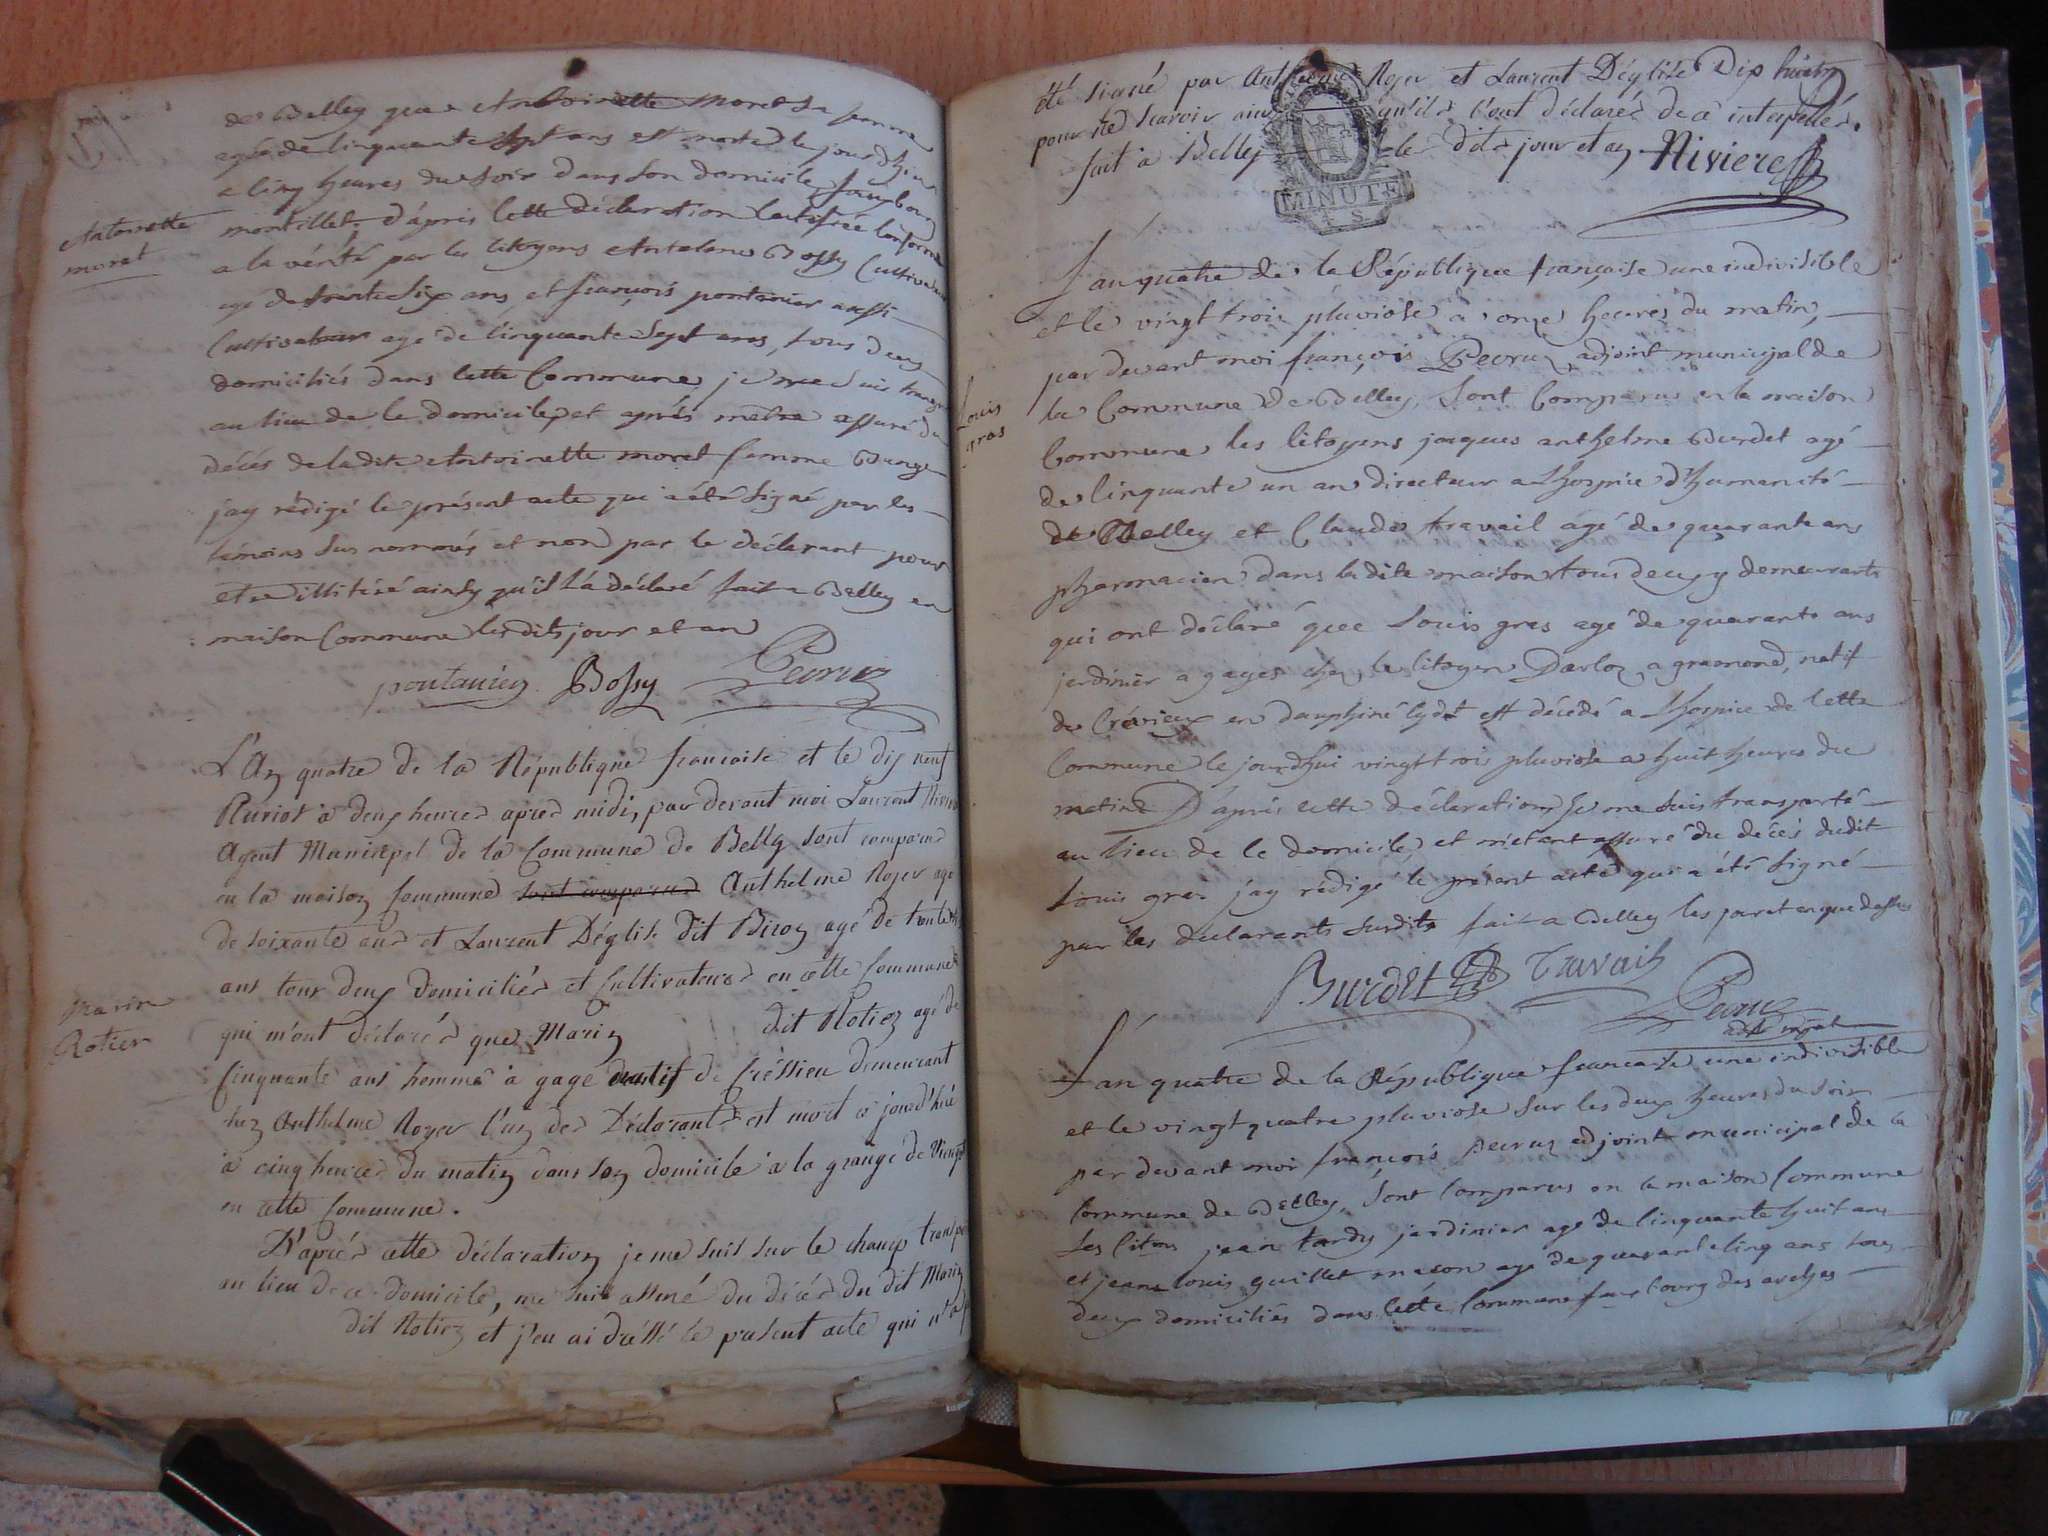 de Belley que Antoinette Moret sa femme
agée de cinquante sept ans est morte le jour d'hier
a cinq heures du soir dans son domicile fauxbourg
Antoinette
moret
montillet. d'après cette déclaration certifiée conforme
a la vérité par les citoyens Antelme Bossy Cultivateur
agé de soixante Six ans, et françois pontanier aussi
Cultivateur agé de cinquante Sept ans, tous deux
domiciliés dans cette Commune, je me suis transporté
au lieu de ce domicile et après mêtre assuré du
décés de la dite Antoinette moret femme
jay rédigé le présent acte qui a été Signé par les
témoins sus nommés et non par le déclarant pour
etre illitéré ainsy qu'il l'a déclaré fait a Belley en
maison Commune les dits jour et an
pontanier Bossy Peeruz
L'an quatre de la République francaise et le dix neuf
Pluviot à deux heures apres midi, par devant moi Laurent Riviere
Agent Municipal de la Commune de Belly sont comparus
en la maison commune sont comparus Anthelme Rojer agé
de soixante ans et Laurent Déglise dit Biron agé de trente
ans tous deux domiciliés et Cultivateurs en cette Commune
Marin
Rotier
qui m'ont declarés que Marin dit Rotier agé de
cinquante ans homme à gage natif de Créssieu demeurant
chez Anthelme Royer l'un des Déclarants est mort ce jourd'hui
à cinq heures du matin dans son domicile à la grange de
en cette Commune.
D'après cette déclaration je me suis sur le champ transporté
au lieu de ce domicile, me suis assuré du décés du dit Marin
dit Rotier et j'en ai dressé le présent acte qui n'a pas
été signé par Anthelme Rojer et Laurent Déglise Dix huit
pour ne scavoir ainsi qu'ils l'ont déclarés de ce interpellés.
fait à Belley le dit jour et an Riviere
MINUTE
4 S.
L'an quatre de la République française une indivisible
et le vingt trois pluviose à onze heures du matin,
par devant moi françois Peeruz adjoint municipal de
la Commune de Belley, Sont Comparus en la maison
Louis
gras
Commune les citoyens jacques anthelme Burdet agé
de cinquante un an directeur a lhospice d'humanité
de Belley et Claude travail agé de quarante ans
pharmacien dans la dite maison tous deux y demeurants
qui ont déclaré que Louis gras agé de quarante ans
jardinier a gages chez le citoyen Darloz a gramond, natif
de Crévieux en dauphiné lydt est décédé a lhospice de cette
Commune le jourdhui vingt trois pluviose a huit heures du
matin. D'après cette déclaration, je me suis transporté
au lieu de ce domicile, et m'etant assuré du décés dudit
Louis gras jay rédigé le présent acte qui a été Signé
par les declarants Susdits fait a Belley les jour et an que dessus
Burdet Travail
Peeruz
adjt mpal
L'an quatre de la République francaise une indivisible
et le vingt quatre pluviose sur les deux heures du soir
par devant moi françois peeruz adjoint municipal de la
Commune de Belley, Sont Comparus en la maison Commune
Les Citons jean tardy jardinier agé de cinquante huit ans
et jeanlouis guillet macon agé de quarante cinq ans tous
deux domiciliés dans cette Commune faux bourg des arches